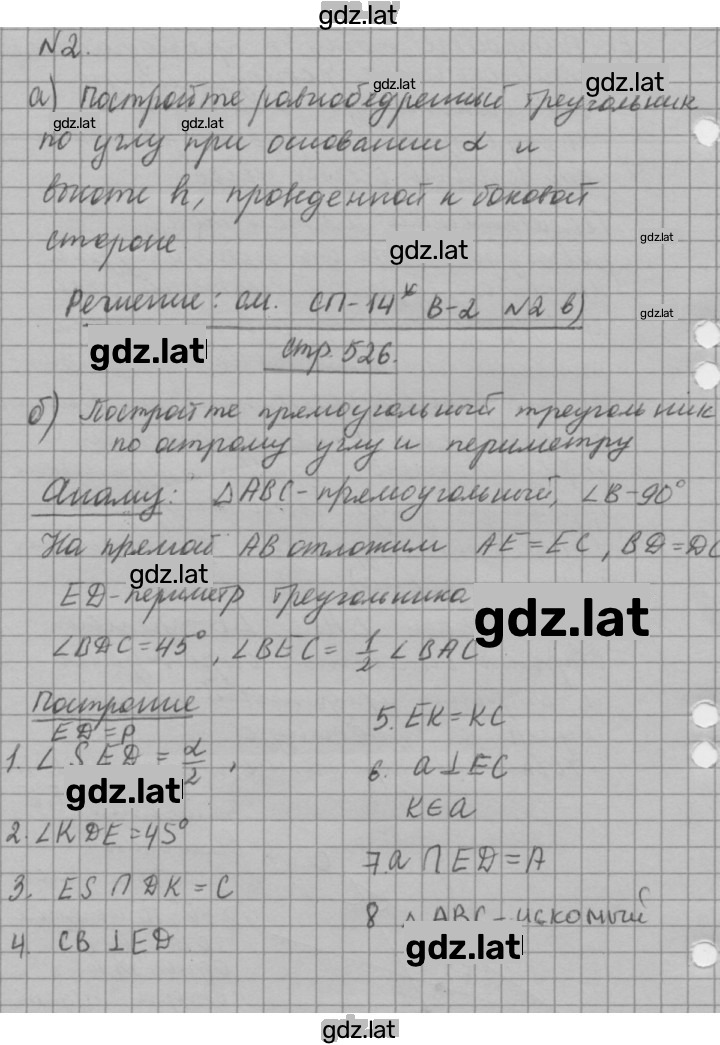 gdz.lat
N2.
а) Постройте равнобедренный треугольник
gdz.lat
gdz.lat
gdz.lat gdz.lat
по углу при основании α и
высоте h, проведенной к боковой
стороне
gdz.lat
gdz.lat
Решение: см. СП-14* В-2 N2 в)
gdz.lat
gdz.lat
стр. 526.
б) Постройте прямоугольный треугольник
по острому углу и периметру
Анализ: △ABC - прямоугольный, ∠B-90°
На прямой AB отложим AE=EC, BD=DC
gdz.lat
ED-периметр треугольника
gdz.lat
∠BDC=45°, ∠BEC= 1/2 ∠BAC
Построение
ED=P
1. ∠SED = α/2,
gdz.lat
2. ∠KDE=45°
3. ES ∩ DK = C
4. CB ⊥ ED
5. EK=KC
6. a⊥EC
K∈a
7. a ∩ ED=A
8 △ABC-искомый
gdz.lat
gdz.lat